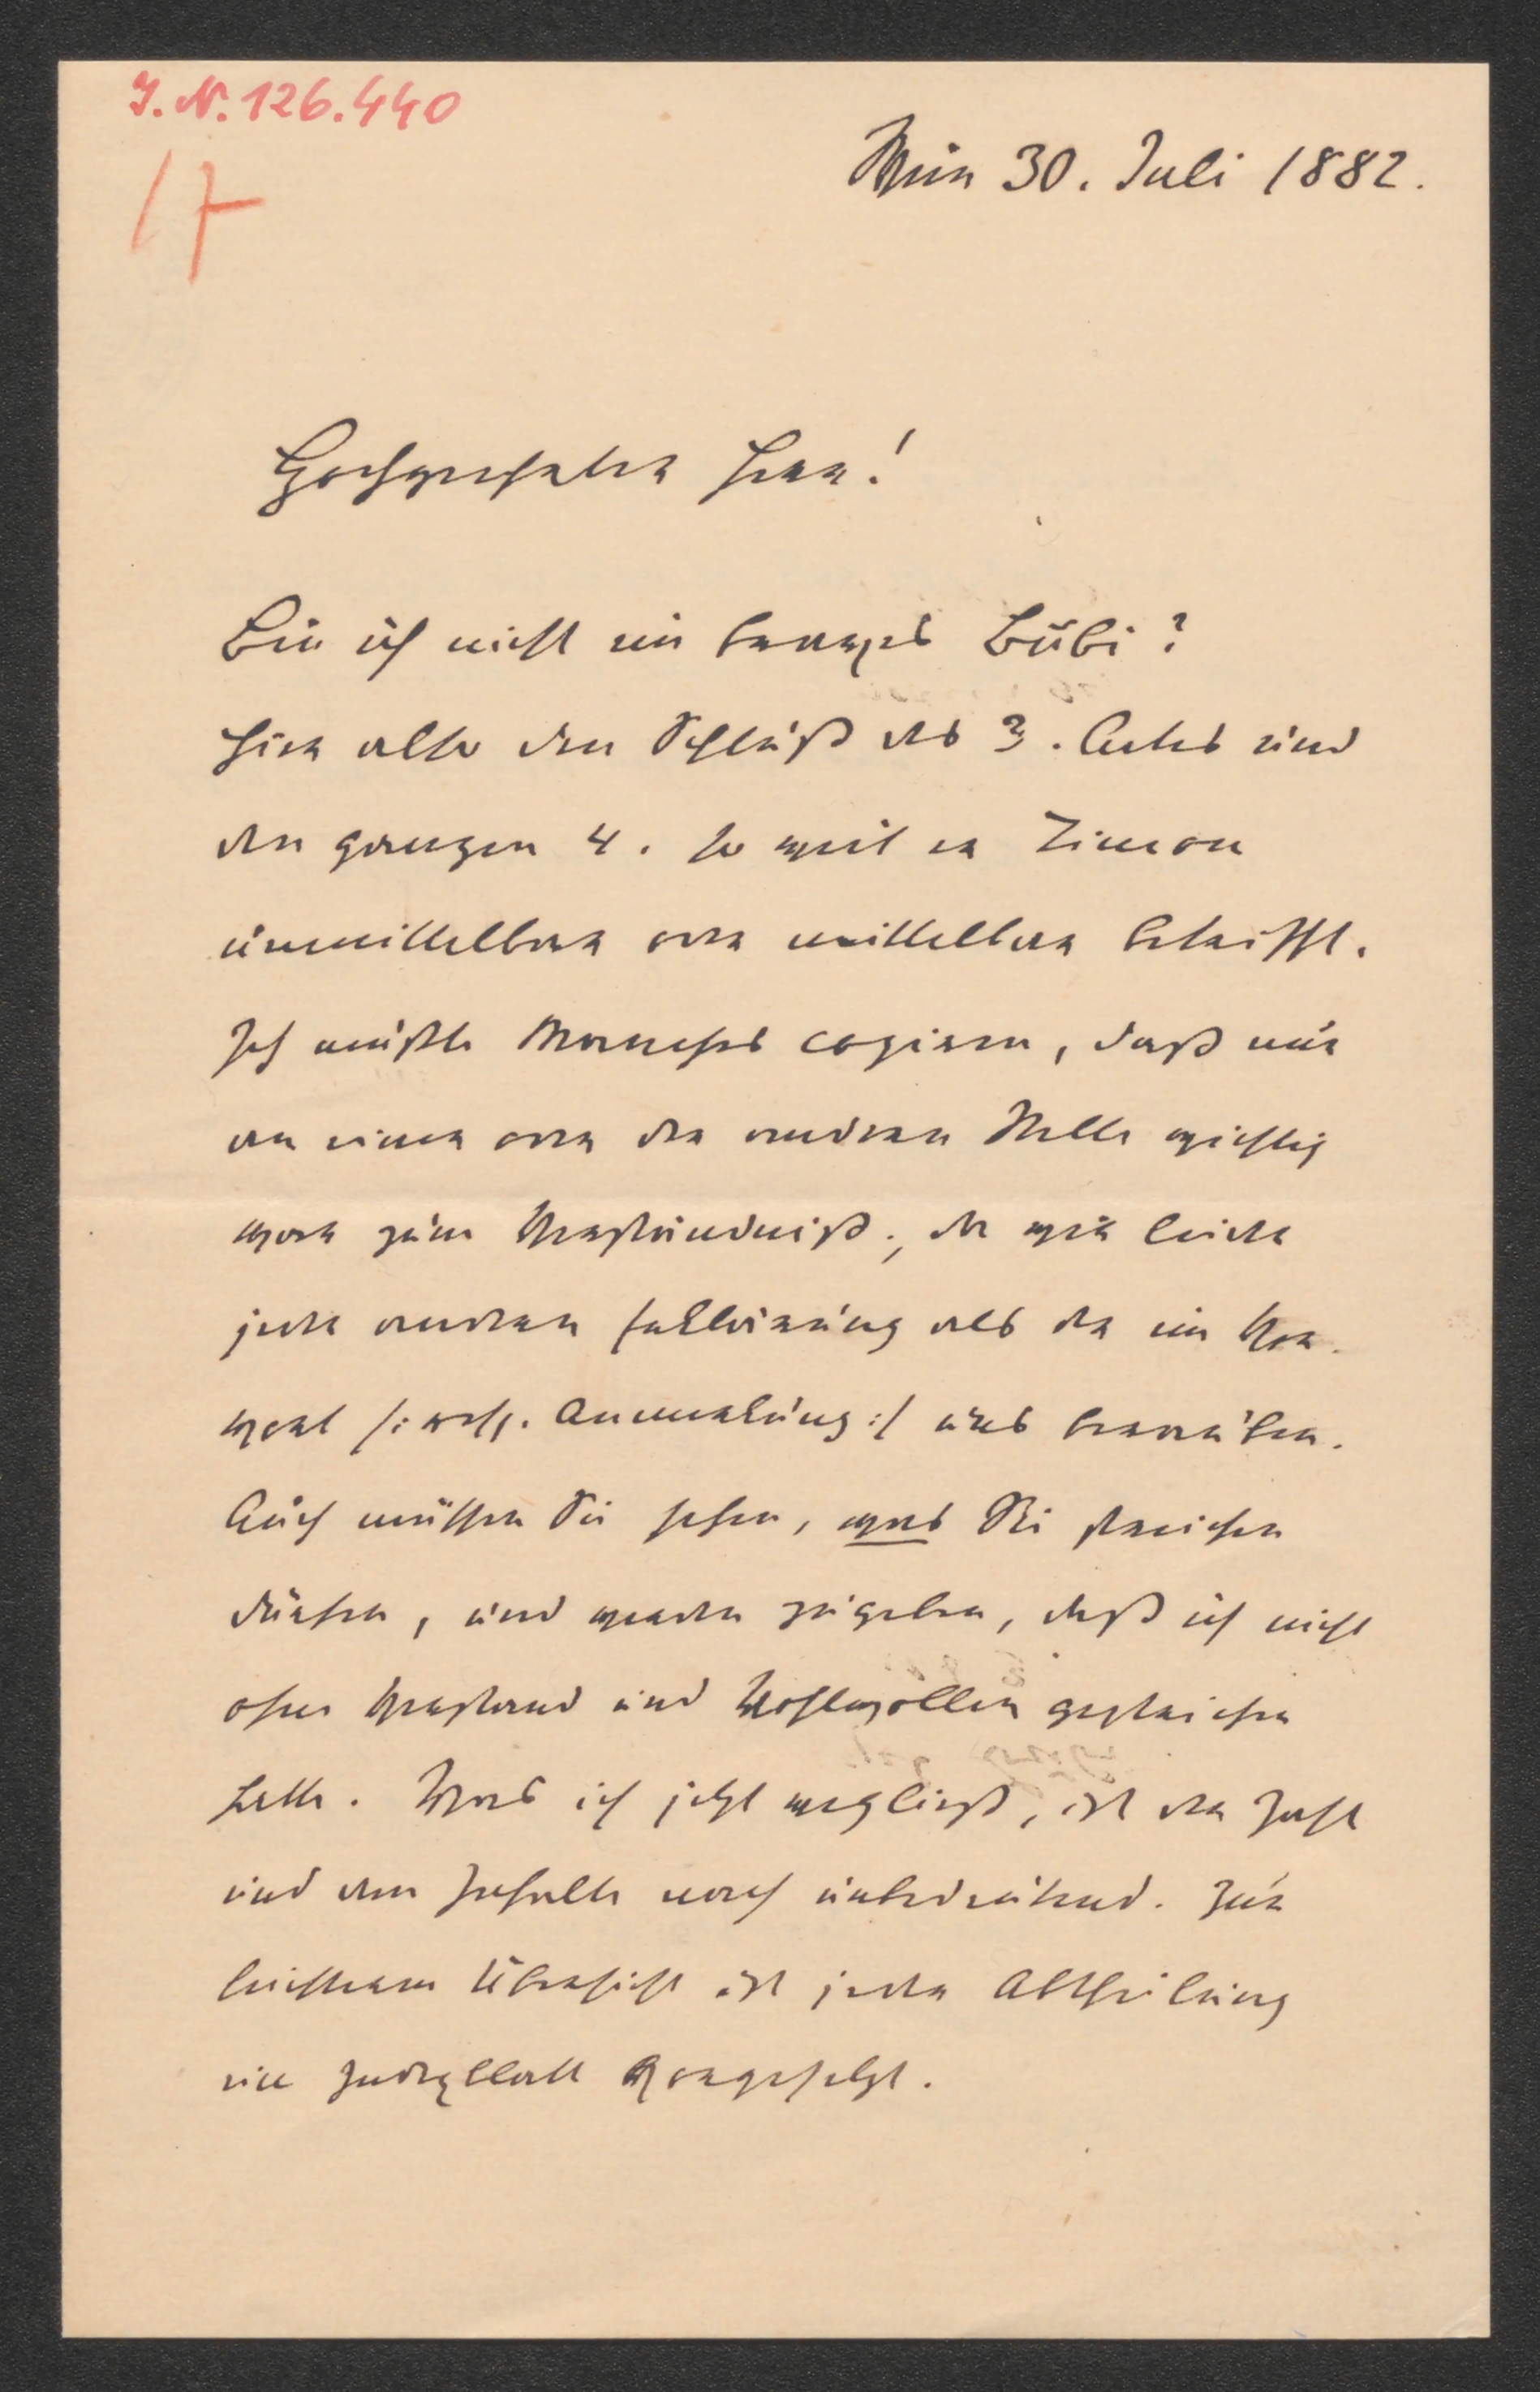 I. N. 126.440
17
Wien 30. Juli 1882.
Hochgeehrter Herr!
Bin ich nicht ein braves Bübi?
Hier also den Schluß des 3. Actes und
den ganzen 4. so weit er Timon
unmittelbar oder mittelbar betrifft.
Ich mußte Manches copiren, daß nur
an einer oder der anderen Stelle wichtig
war zum Verständniß; da mir leider
jede andere Erklärung als der im Vor-
wort /: resp. Anmerkung :/
Auch müssen Sie sehen, was Sie streichen
dürfen, und werden zugeben, daß ich nicht
ohne Verstand und Wohlwollen gestrichen
hatte. Was ich jetzt wegließ, ist der Zahl
und dem Inhalte nach unbedeutend. Zur
leichteren Übersicht ist jeder Abtheilung
ein Indexblatt vorgesetzt.